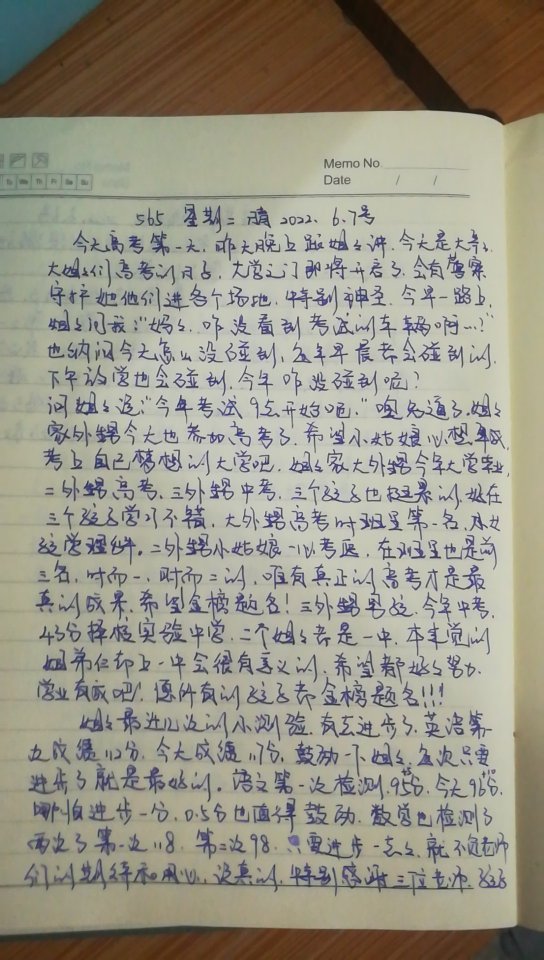 Memo No
Date / /
Tu We Th Fr Sa Su
565 星期二 晴 2022. 6.7号
今天高考第一天,昨天晚上跟姐姐讲,今天是大哥哥
大姐姐们高考的日子,大学之门即将开启了,会有警察
守护她他们进各个场地,特别神圣,今早一路上,
姐姐问我:"妈妈,咋没看到考试的车辆啊…?"
也纳闷今天怎么没碰到,每年早晨都会碰到的,
下午放学也会碰到,今年咋没碰到呢?
问姐姐说:"今年考试9点开始吧,"难道了,姐姐
家外甥今天也参加高考了,希望小姑娘心想事成,
考上自己梦想的大学吧,姐姐家大外甥今年大学毕业,
二外甥高考,三外甥中考,三个孩子也挺累的,好在
三个孩子学习不错,大外甥高考时班里第一名,小女
孩学理科。二外甥小姑娘一心考医,在班里也是前
三名,时而一,时而二的,唯有真正的高考才是最
真的成果,希望金榜题名!三外甥男孩,今年中考,
43分择校实验中学,二个姐姐都是一中,本来觉的
姐弟仨都上一中会很有意义的,希望都好好努力,
学业有成吧!愿所有的孩子都金榜题名!!!
姐姐最近几次的小测验,有点进步了,英语第
九成绩112分,今天成绩117分,鼓励一下姐姐,每次只要
进步了就是最好的。语文第一次检测,95分,今天96分,
哪怕进步一分,0.5分也值得鼓励,数学也检测了
两次了第一次118,第二次98,只要进步一点点,就不负老师
们的期待和用心,说真的,特别感谢三位老师,孩子